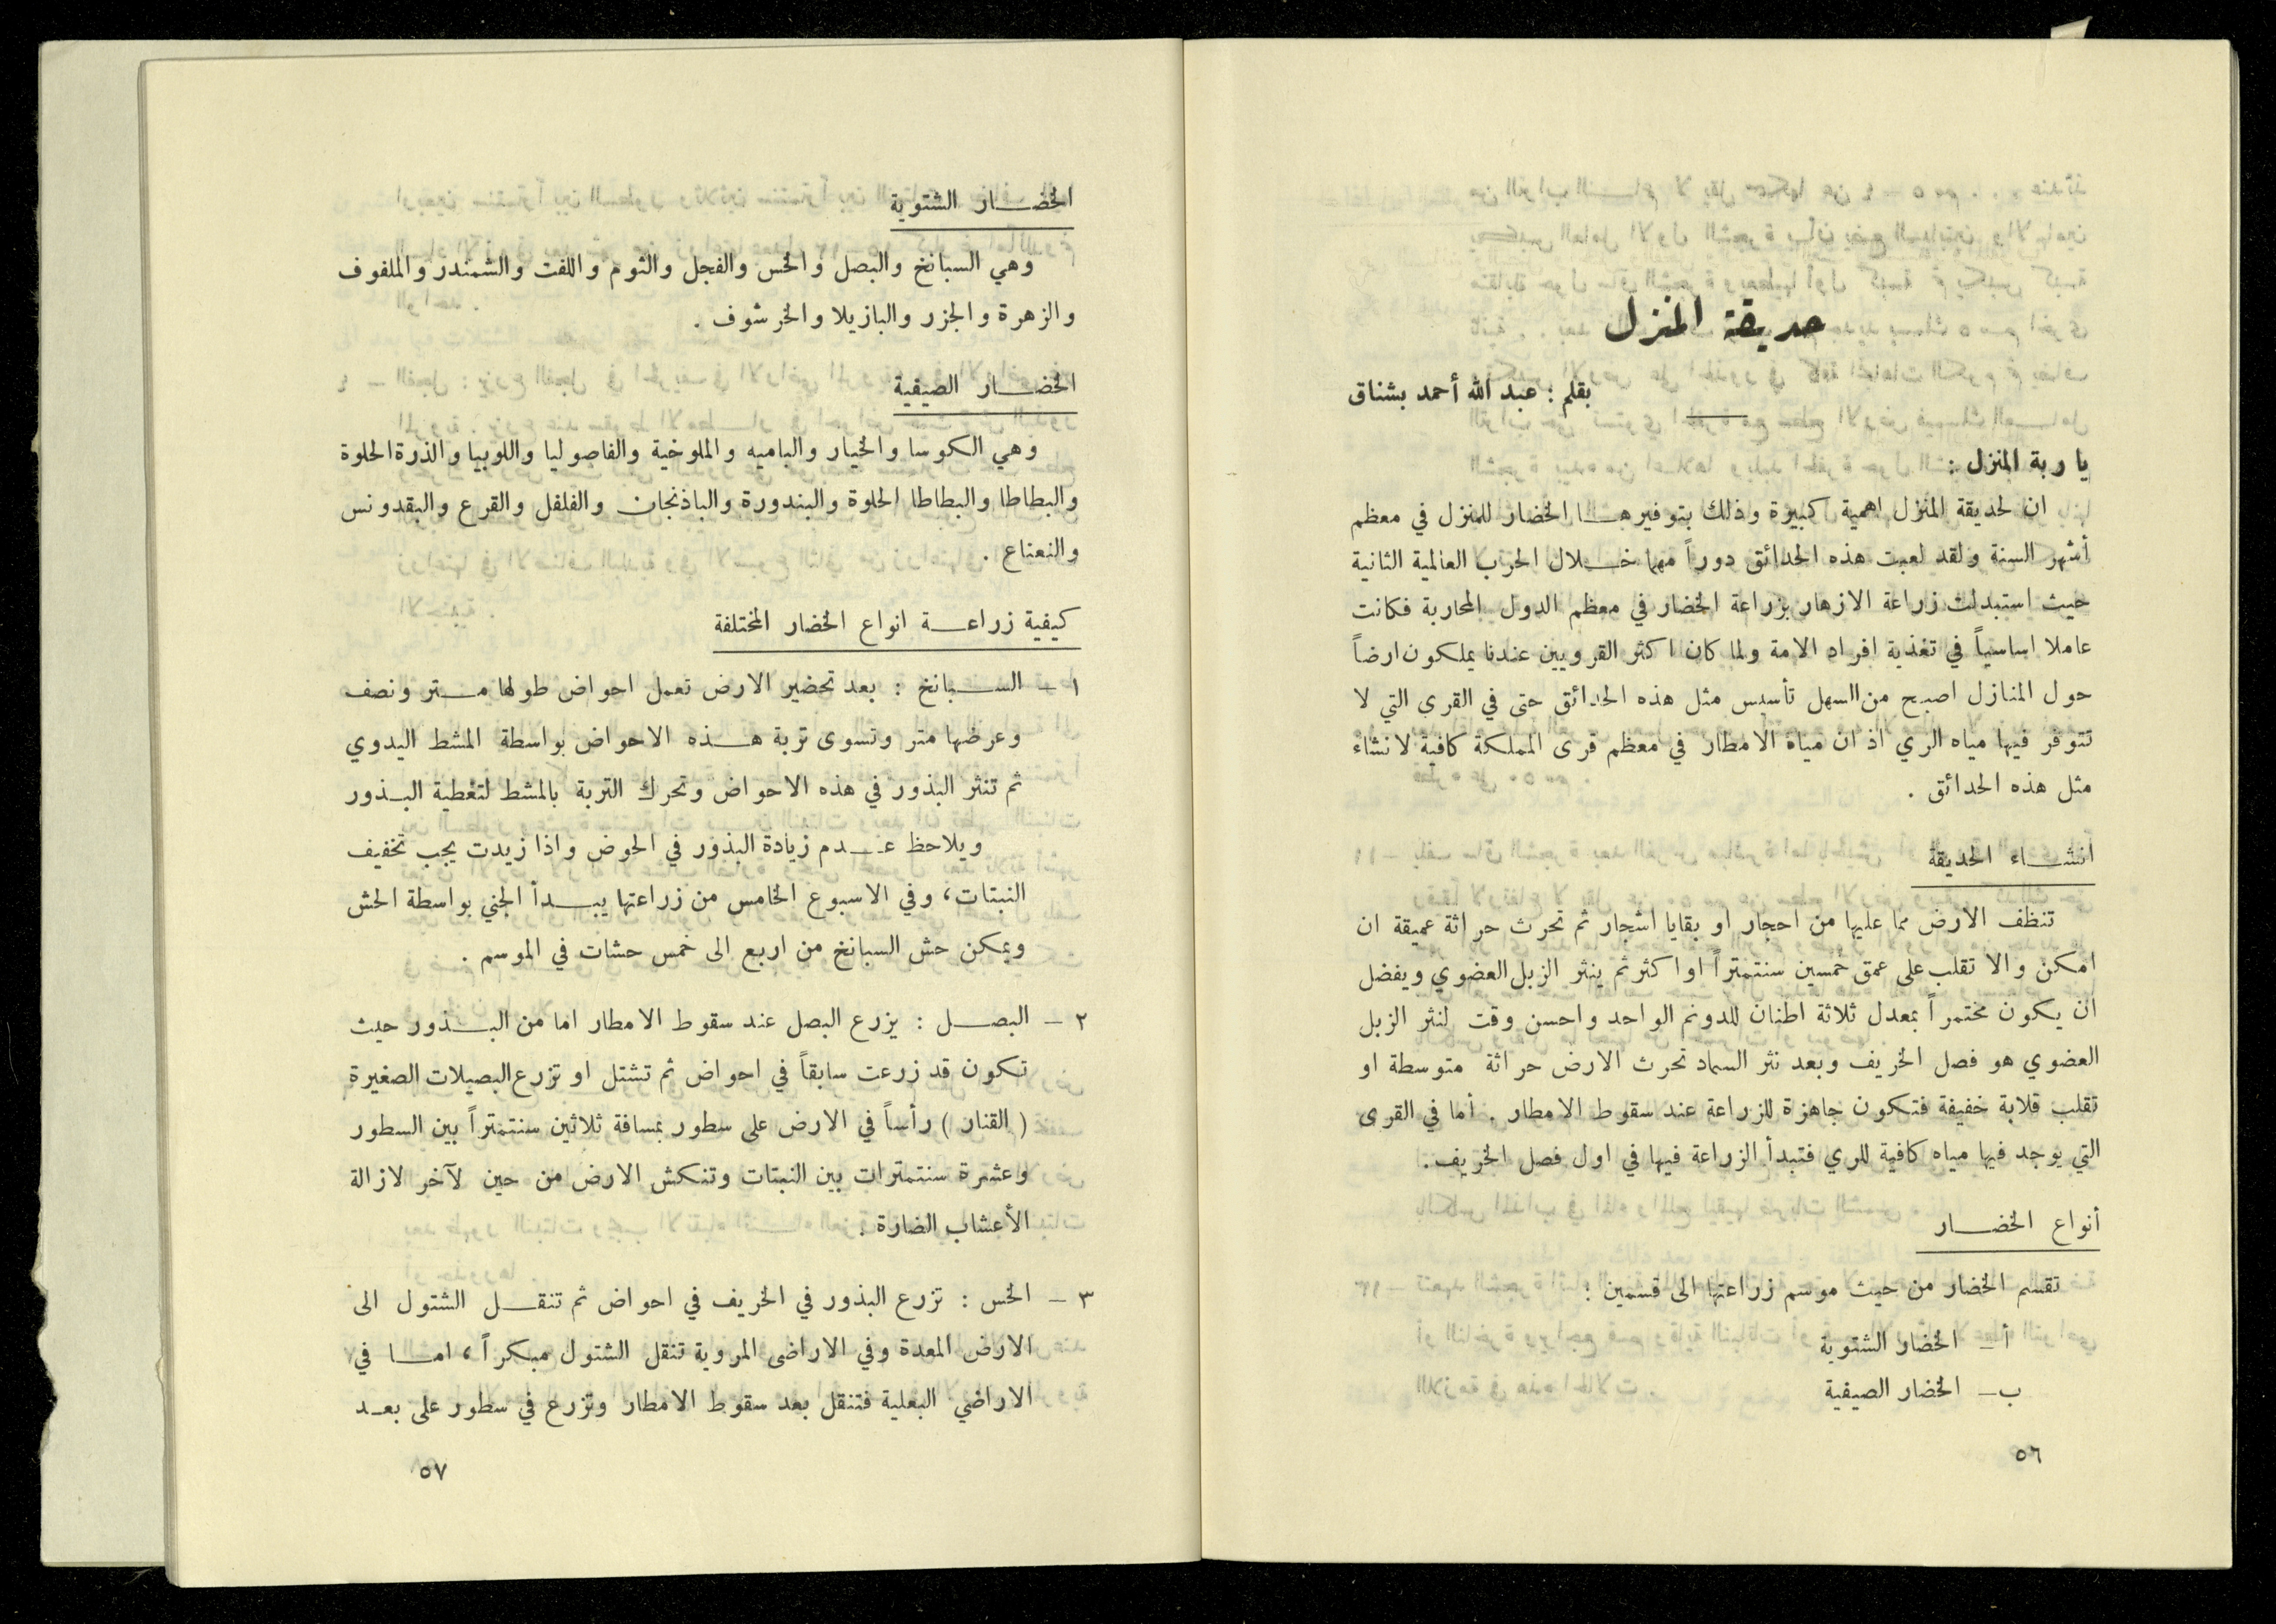 حديقة المنزل
بقلم : عبد الله أحمد بشناق
يا ربة المنزل :
ان لحديقة المنزل اهمية كبيرة وذلك بتوفيرها الخضار للمنزل في معظم
أشهر السنة ولقد لعبت هذه الحدائق دوراً مهما خلال الحرب العالمية الثانية
حيث استبدلت زراعة الازهار بزراعة الخضار في معظم الدول المحاربة فكانت
عاملا اساسياً في تغذية افراد الامة ولما كان اكثر القرويين عندنا يملكون ارضاً
حول المنازل اصبح من السهل تأسيس مثل هذه الحدائق حتى في القرى التي لا
تتوفر فيها مياه الري اذ ان مياة الامطار في معظم قرى المملكة كافية لانشاء
مثل هذه الحدائق .
انشاء الحديقة
تنظف الارض مما عليها من احجار او بقايا اشجار ثم تحرث حراثة عميقة ان
امكن والا تقلب على عمق خمسين سنتمتراً او اكثر ثم ينثر الزبل العضوي ويفضل
ان يكون مختمراً بمعدل ثلاثة اطنان للدونم الواحد واحسن وقت لنثر الزبل
العضوي هو فصل الخريف وبعد نثر السماد تحرث الارض حراثة متوسطة او
تقلب قلابة خفيفة فتكون جاهزة للزراعة عند سقوط الامطار . أما في القرى
التي يوجد فيها مياه كافية للري فتبدأ الزراعة فيها في اول فصل الخريف .
أنواع الخضار
تقسم الخضار من حيث موسم زراعتها الى قسمين :
أ – الخضار الشتوية
ب – الخضار الصيفية
٥٦
الخضار الشتوية
وهي السبانخ والبصل والخس والفجل والثوم واللفت والشمندر والملفوف
والزهرة والجزر والبازيلا والخرشوف .
الخضار الصيفية
وهي الكوسا والخيار والباميه والملوخية والفاصوليا واللوبيا والذرة الحلوة
والبطاطا والبطاطا الحلوة والبندورة والباذنجان والفلفل والقرع والبقدونس
والنعناع .
كيفية زراعة انواع الخضار المختلفة
١ – السبانخ : بعد تحضير الارض تعمل احواض طولها متر ونصف
وعرضها متر وتسوى تربة هذه الاحواض بواسطة المشط اليدوي
ثم تنثر البذور في هذه الاحواض وتحرك التربة بالمشط لتغطية البذور
ويلاحظ عدم زيادة البذور في الحوض واذا زيدت يجب تخفيف
النبتات ، وفي الاسبوع الخامس من زراعتها يبدأ الجني بواسطة الحش
ويمكن حش السبانخ من اربع الى خمس حشات في الموسم .
٢ – البصل : يزرع البصل عند سقوط الامطار اما من البذور حيث
تكون قد زرعت سابقاً في احواض ثم تشتل او تزرع البصيلات الصغيرة
( القنار ) رأساً في الارض على سطور بمسافة ثلاثين سنتمتراً بين السطور
وعشرة سنتمترات بين النبتات وتنكش الارض من حين لآخر لازالة
الأعشاب الضارة .
٣ – الخس : تزرع البذور في الخريف في احواض ثم تنقل الشتول الى
الارض المعدة وفي الاراضى المروية تنقل الشتول مبكراً ، اما في
الاراضي البعلية فتنقل بعد سقوط الامطار وتزرع في سطور على بعد
٥٧